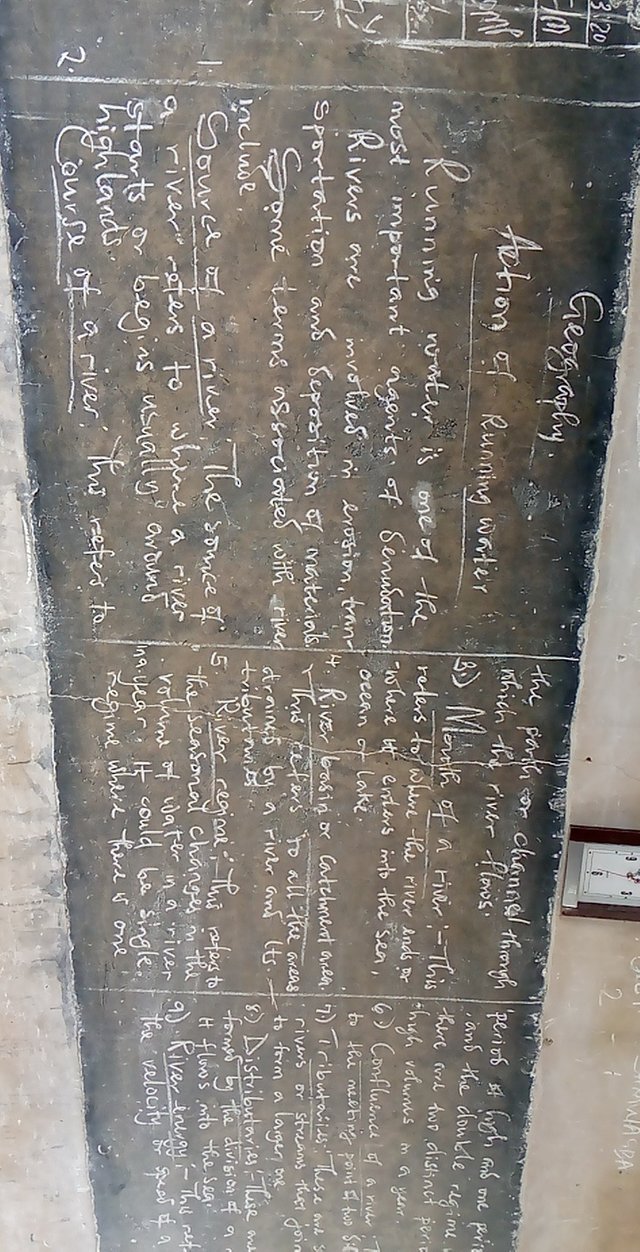 Geography.
Action of Running water
Running water is one of the
most important agents of denudation.
Rivers are involved in erosion, tran-
sportation and deposition of materials
Some terms associated with river
include.
1. Source of a river: The source of
a river refers to where a river
starts or begins usually around
highlands.
2. Course of a river: This refers to
the path or channel through
which the river flows.
3) Mouth of a river:- This
refers to where the river ends or
where it enters into the sea,
ocean or lake
4. River basin or Catchment area
This refers to all the areas
drained by a river and its
tributaries
5. River regime: This refers to
the seasonal changes in the
volume of water in a river
in a year. It could be single
regime where there is one
period of high and one
and the double regime
there are two distinct
high volumes in a year.
6) Confluence of a river
to the meeting point of two
7) Tributaries: These are
rivers or streams that join
to form a larger one
8) Distributaries:- These are
formed by the division of a
it flows into the sea.
9) River energy:- This
the velocity or speed of a